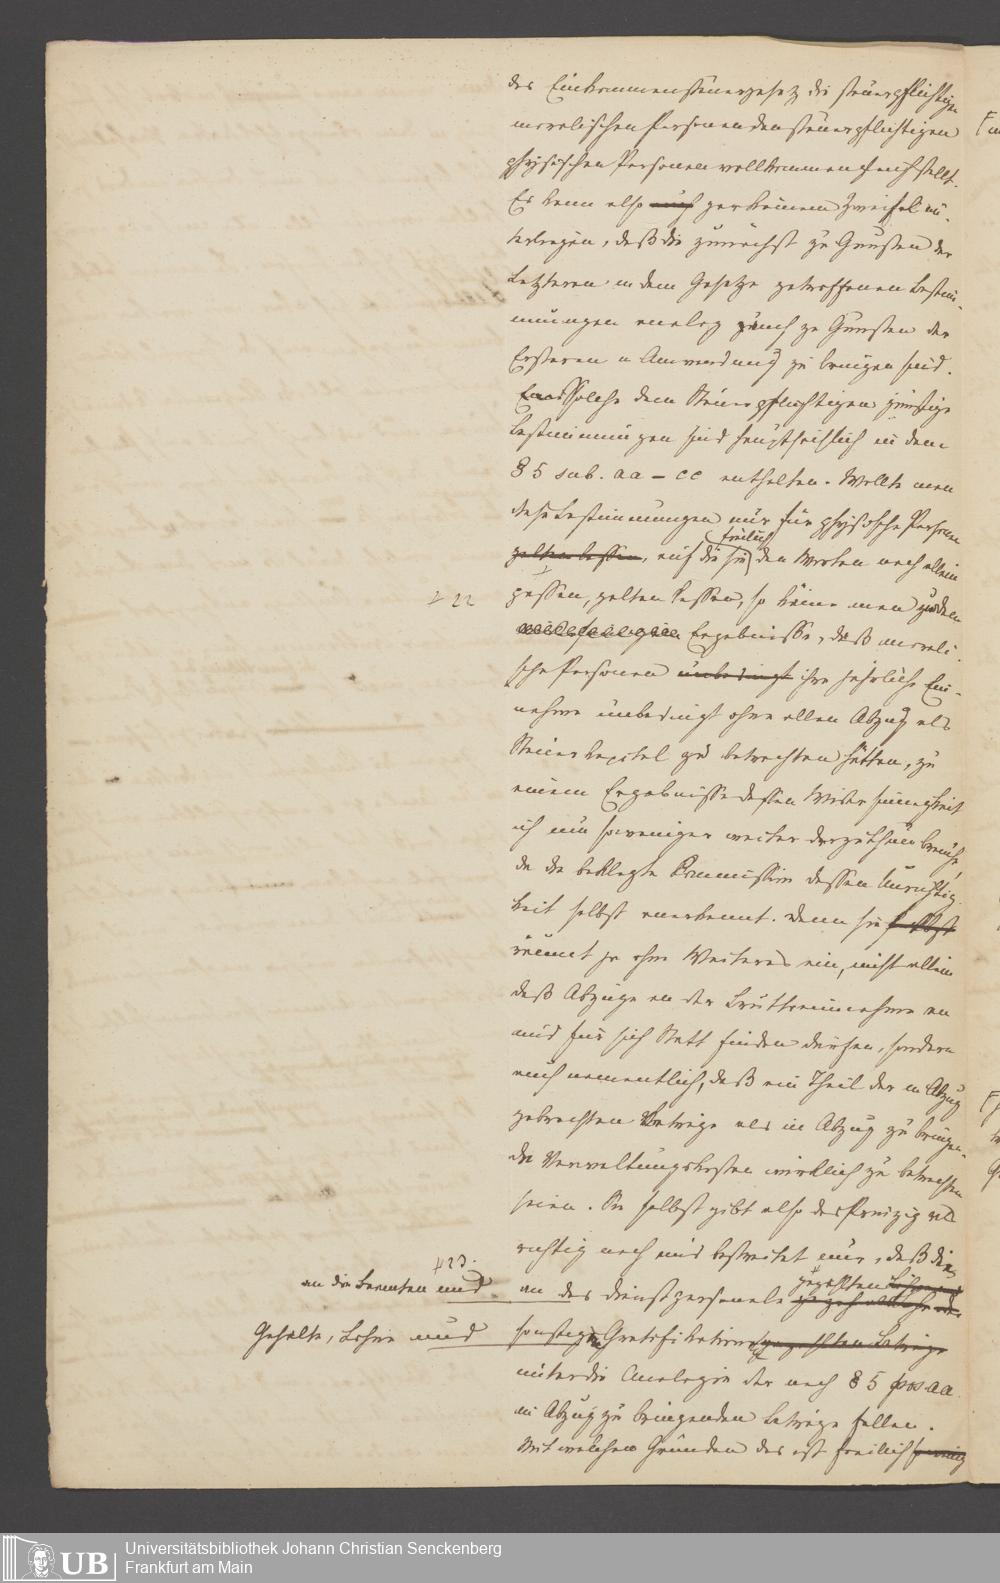 des Einkommensteuergesetz die steuerpflichtigen
moralischen Personen den steuerpflichtigen
physischen Personen vollkommen gleichstellt.
Es kann also auch gar keinem Zweifel un-
terliegen, daß die zunächst zu Gunsten der
Letzteren in dem Gesetze getroffenen Bestim-
mungen analog auch zu Gunsten der
Ersteren in Anwendung zu bringen sind.
Solche dem Steuerpflichtigen günstige
Bestimmungen sind hauptsächlich in dem
§ 5 sub. aa – cc enthalten. Wollte man
diese Bestimmungen nur für physische Personen
freilich
gelten lassen, auf die sie den Worten nach allein
+ 22
passen, gelten lassen, so käme man zu dem
Ergebnisse, daß morali-
sche Personen unbedingt ihre jährliche Ein-
nahme unbedingt ohne allen Abzug als
Steuerkapital zu betrachten hätten, zu
einem Ergebnisse dessen Widersinnigkeit
ich um so weniger weiter darzuthun brauche,
da die beklagte Commission dessen Unrichtig-
keit selbst anerkennt. Denn sie selbst
räumt ja ohne Weiteres ein, nicht allein
daß Abzüge an der Bruttoeinnahme an
und für sich Statt finden dürfen, sondern
auch namentlich, daß ein Theil der in Abzug
gebrachten Beträge als in Abzug zu bringen-
de Verwaltungskosten wirklich zu betrachten
seien. Sie selbst gibt also das Prinzip als
richtig nach und bestreitet nur, daß die
+23.
an die Beamten und
gezahlten
an das Dienstpersonale
Gehalte, Löhne und
sonstigen Gratifikationen gezahlten Beträge
unter die Analogie der nach § 5 pos aa.
in Abzug zu bringenden Beträge fallen.
Mit welchen Gründen das ist freilich
Universitätsbibliothek Johann Christian Senckenberg
Frankfurt am Main
UB